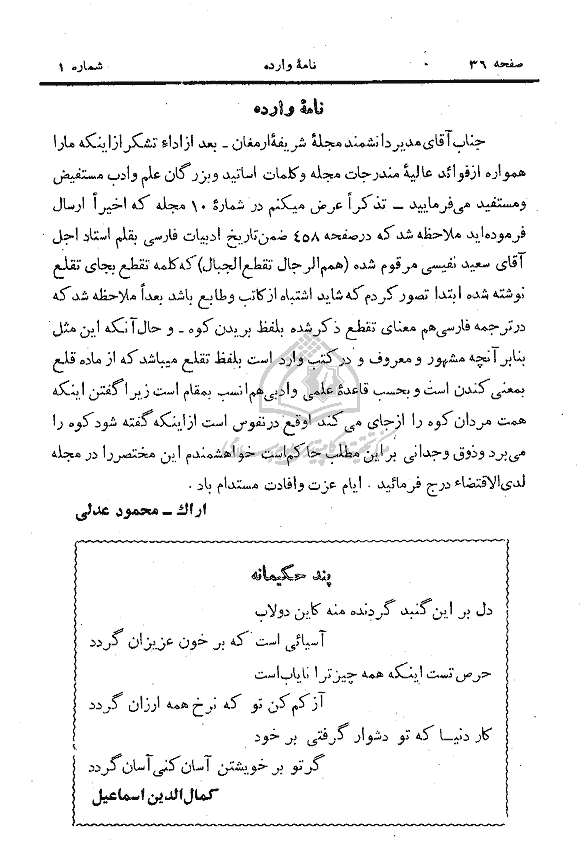 صفحه ۳۶ نامهٔ وارده شماره ۱
نامهٔ وارده
جناب آقای مدیر دانشمند مجلهٔ شریفهٔ ارمغان ـ بعد از اداء تشکر از اینکه مارا
همواره از فوائد عالیهٔ مندرجات مجله و کلمات اساتید و بزرگان علم وادب مستفیض
ومستفید می‌فرمایید ـ تذکراً عرض میکنم در شمارهٔ ۱۰ مجله که اخیراً ارسال
فرموده‌اید ملاحظه شد که درصفحه ۴۵۸ ضمن تاریخ ادبیات فارسی بقلم استاد اجل
آقای سعید نفیسی مرقوم شده (همم‌الرجال تقطع‌الجبال) که کلمه تقطع بجای تقلع
نوشته شده ابتدا تصور کردم که شاید اشتباه از کاتب وطابع باشد بعداً ملاحظه شد که
درترجمه فارسی هم معنای تقطع ذکر شده بلفظ بریدن کوه ـ و حال آنکه این مثل
بنابر آنچه مشهور و معروف و در کتب وارد است بلفظ تقلع میباشد که از ماده قلع
بمعنی کندن است و بحسب قاعدهٔ علمی وادبی هم انسب بمقام است زیرا گفتن اینکه
همت مردان کوه را ازجای می کند اوقع درنفوس است ازاینکه گفته شود کوه را
می‌برد وذوق وجدانی براین مطلب حاکم‌است خواهشمندم این مختصررا در مجله
لدی‌الاقتضاء درج فرمائید . ایام عزت وافادت مستدام باد .
اراك ـ محمود عدلی
پند حکیمانه
دل بر این گنبد گردنده منه کاین دولاب
آسیائی است که بر خون عزیزان گردد
حرص تست اینکه همه چیز ترا نایاب‌است
آز کم کن تو که نرخ همه ارزان گردد
کار دنیا که تو دشوار گرفتی بر خود
گر تو بر خویشتن آسان کنی آسان گردد
کمال‌الدین اسماعیل